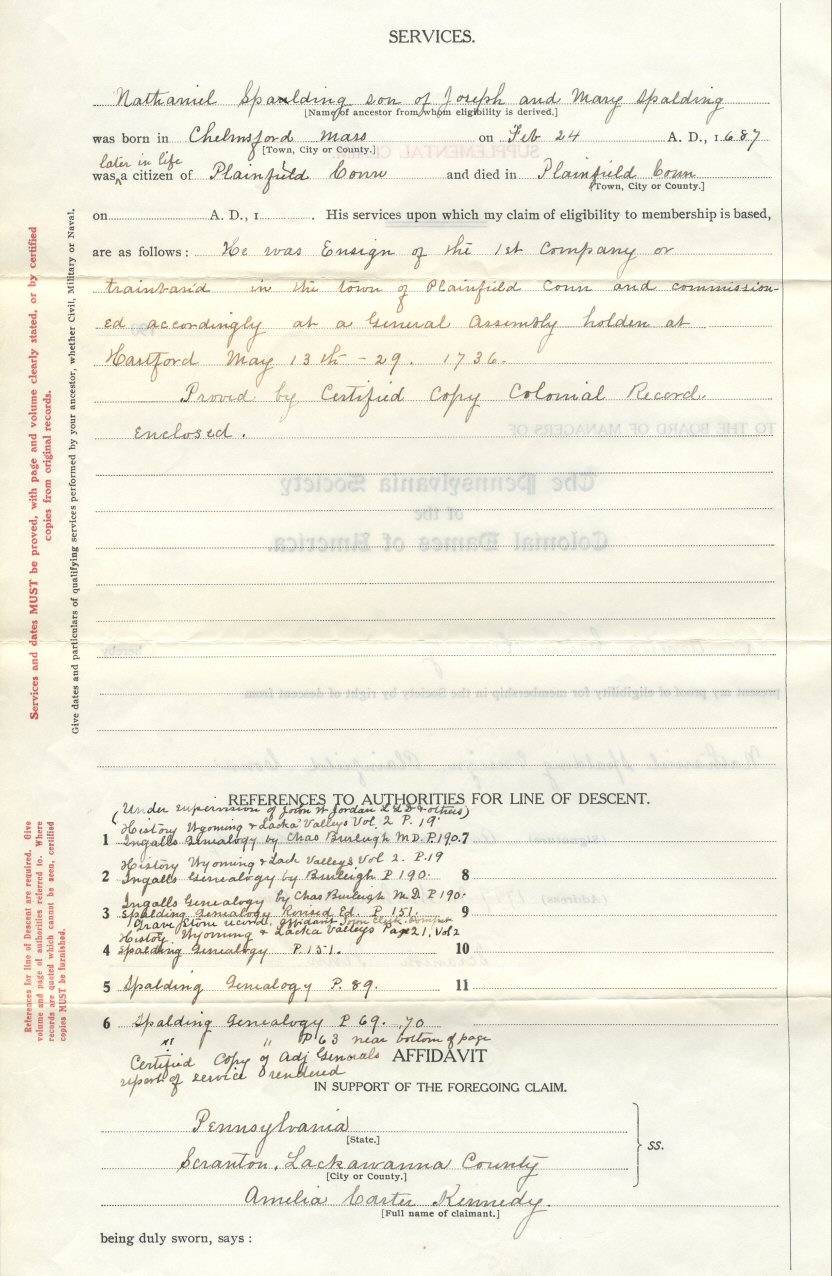 SERVICES.
Nathaniel Spaulding son of Joseph and Mary Spalding
[Name of ancestor from whom eligibility is derived.]
was born in Chelmsford Mass on Feb 24 A. D., 1687
[Town, City or County.]
later in life
was a citizen of Plainfield Conn and died in Plainfield Conn
[Town, City or County.]
on A. D., 1 . His services upon which my claim of eligibility to membership is based,
are as follows: He was Ensign of the 1st Company or
trainband in the town of Plainfield Conn and commission-
ed accordingly at a General Assembly holden at
Hartford May 13th - 29. 1736.
Proved by Certified Copy Colonial Record
enclosed.
Services and dates MUST be proved, with page and volume clearly stated, or by certified
copies from original records.
Give dates and particulars of qualifying services performed by your ancestor, whether Civil, Military or Naval.
REFERENCES TO AUTHORITIES FOR LINE OF DESCENT.
(Under supervision of John W Jordan LLD & others)
History Wyoming & Lacka Valleys Vol 2 P. 19.
1 Ingalls Genealogy by Chas Burleigh M D. P. 190. 7
History Wyoming & Lack Valleys Vol 2. P. 19
2 Ingalls Genealogy by Burleigh P 190. 8
Ingalls Genealogy by Chas Burleigh M. D. P 190.
3 Spalding Genealogy Revised Ed. P. 151. 9
Grave stone record, affidavit Town Clerk
History Wyoming & Lacka Valleys Page 21, Vol 2
4 Spalding Genealogy P. 151. 10
5 Spalding Genealogy P. 89. 11
6 Spalding Genealogy P 69. 70
" " P 63 near bottom of page
Certified Copy of Adj Generals
report of service rendered
References for line of Descent are required. Give
volume and page of authorities referred to. Where
records are quoted which cannot be seen, certified
copies MUST be furnished.
AFFIDAVIT
IN SUPPORT OF THE FOREGOING CLAIM.
Pennsylvania
[State.]
Scranton, Lackawanna County ss.
[City or County.]
Amelia Carter Kennedy.
[Full name of claimant.]
being duly sworn, says: